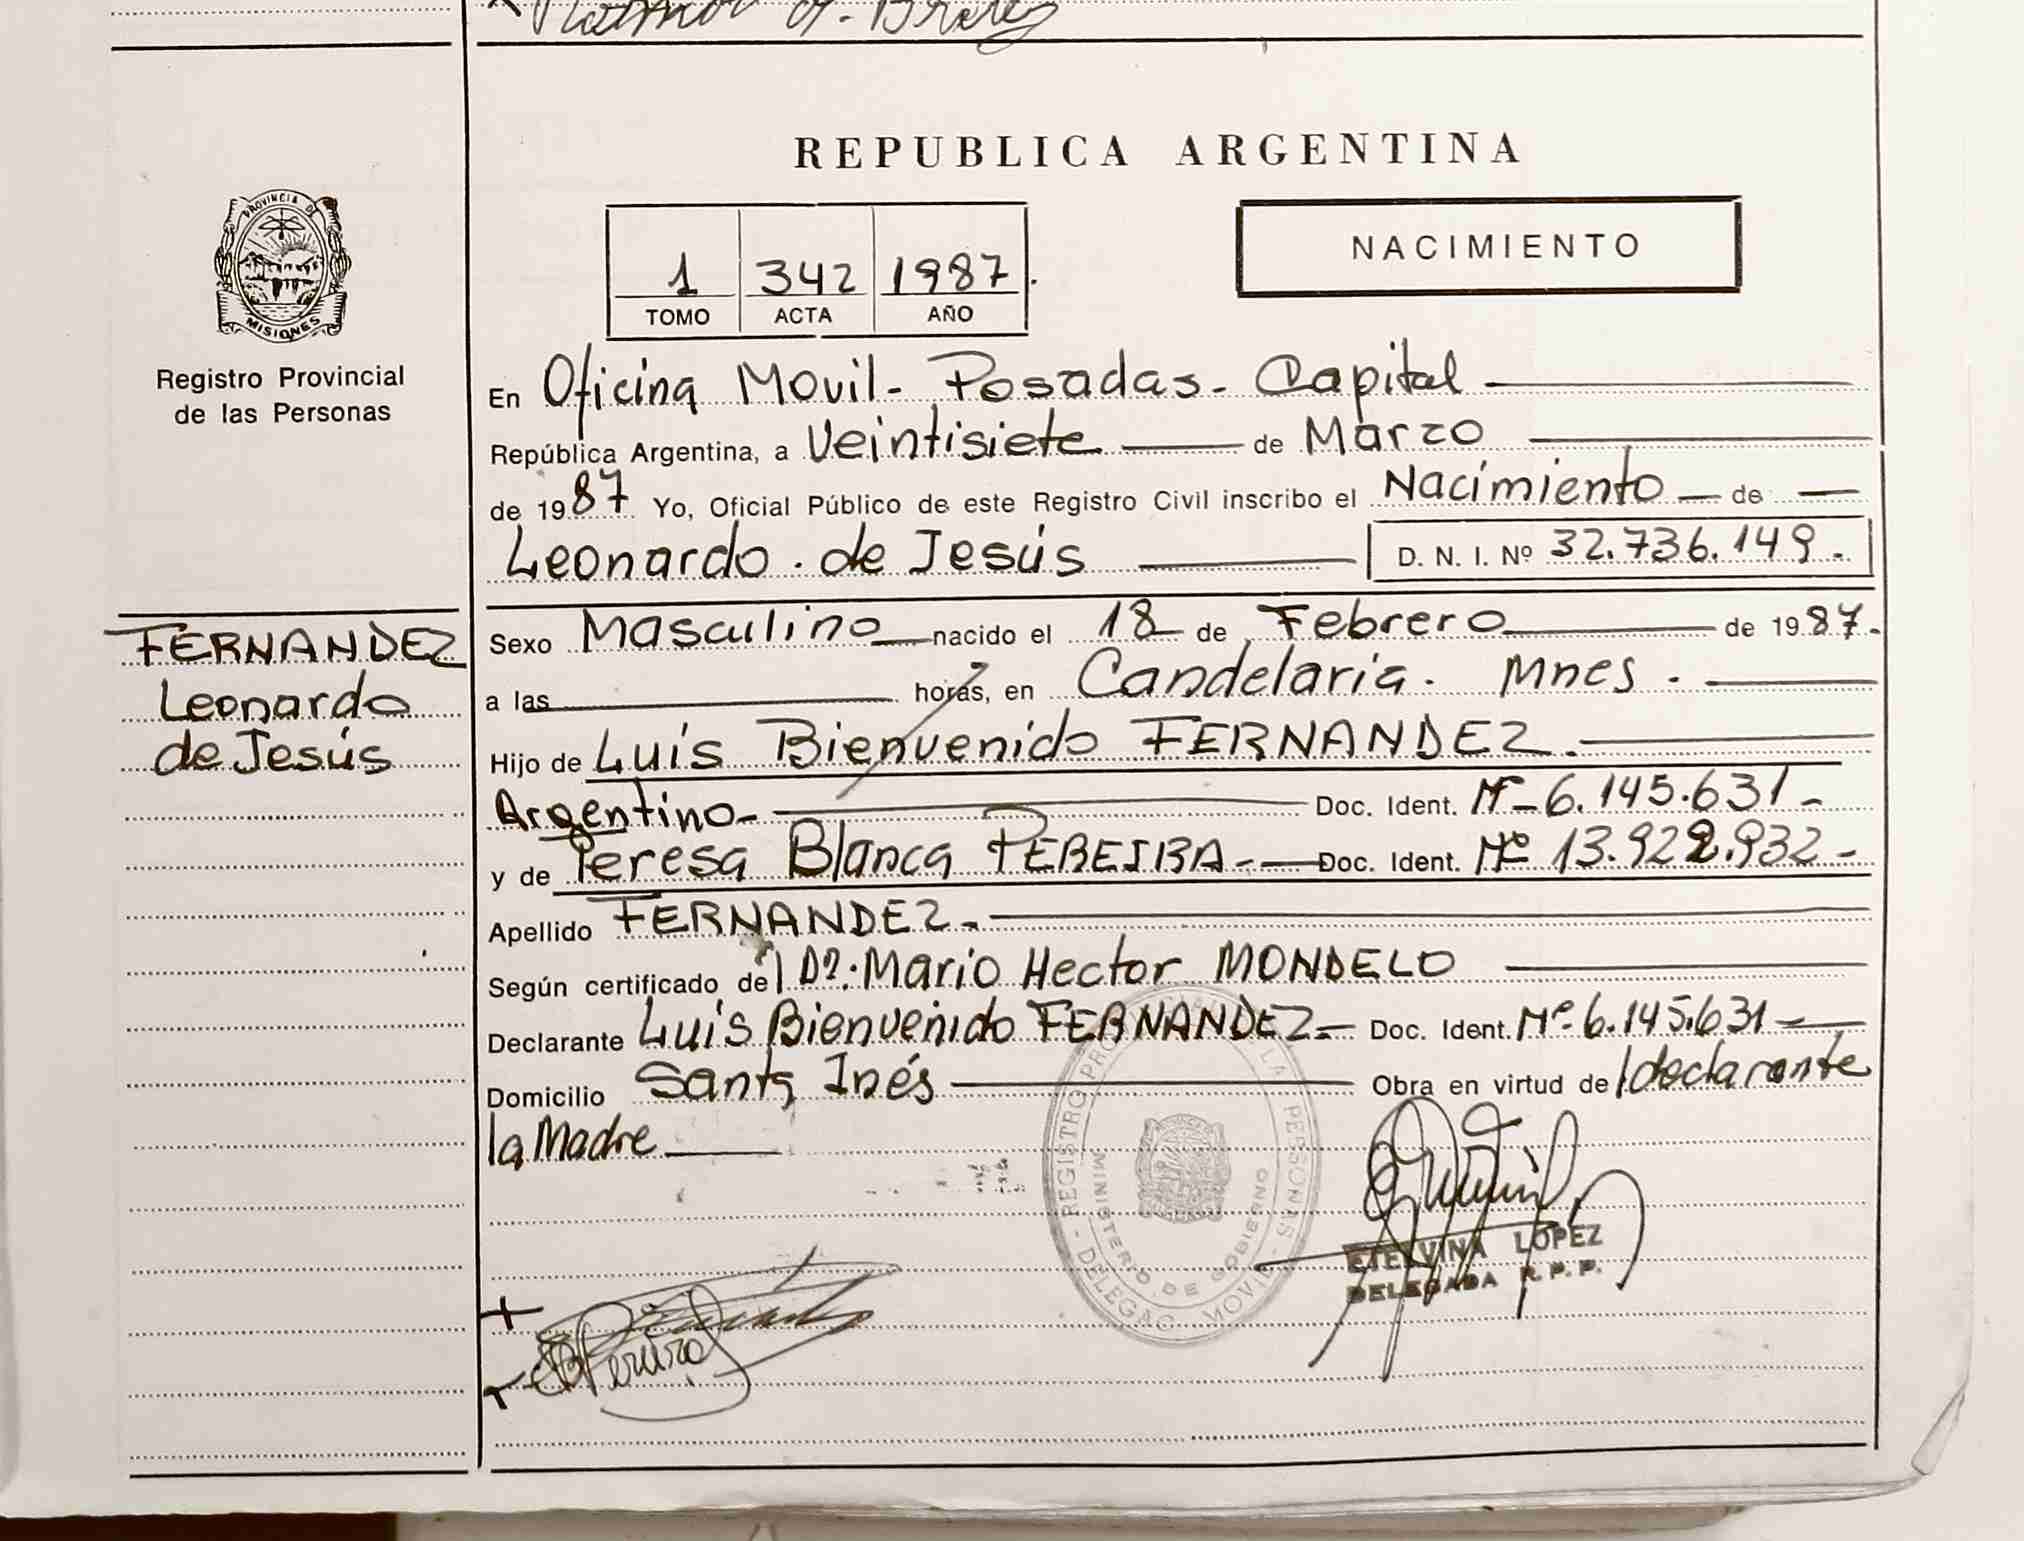 REPUBLICA ARGENTINA
PROVINCIA DE
MISIONES
Registro Provincial
de las Personas
1 342 1987
TOMO ACTA AÑO
NACIMIENTO
En Oficina Movil - Posadas - Capital
República Argentina, a Veintisiete de Marzo
de 1987 Yo, Oficial Público de este Registro Civil inscribo el Nacimiento de
Leonardo de Jesús D. N. I. Nº 32.736.149.
FERNANDEZ
Leonardo
de Jesús
Sexo Masculino nacido el 18 de Febrero de 1987.
a las horas, en Candelaria. Mnes.
Hijo de Luis Bienvenido FERNANDEZ.
Argentino- Doc. Ident. Nº 6.145.631-
y de Teresa Blanca PEREIRA.- Doc. Ident. Nº 13.922.932-
Apellido FERNANDEZ.
Según certificado del Dr: Mario Hector MONDELO
Declarante Luis Bienvenido FERNANDEZ- Doc. Ident. Nº 6.145.631-
Domicilio Santa Inés Obra en virtud de /declarante
la Madre
REGISTRO PROVINCIAL DE LAS PERSONAS - DELEGAC. MOVIL -
MINISTERIO DE GOBIERNO
ETELVINA LOPEZ
DELEGADA R.P.P.